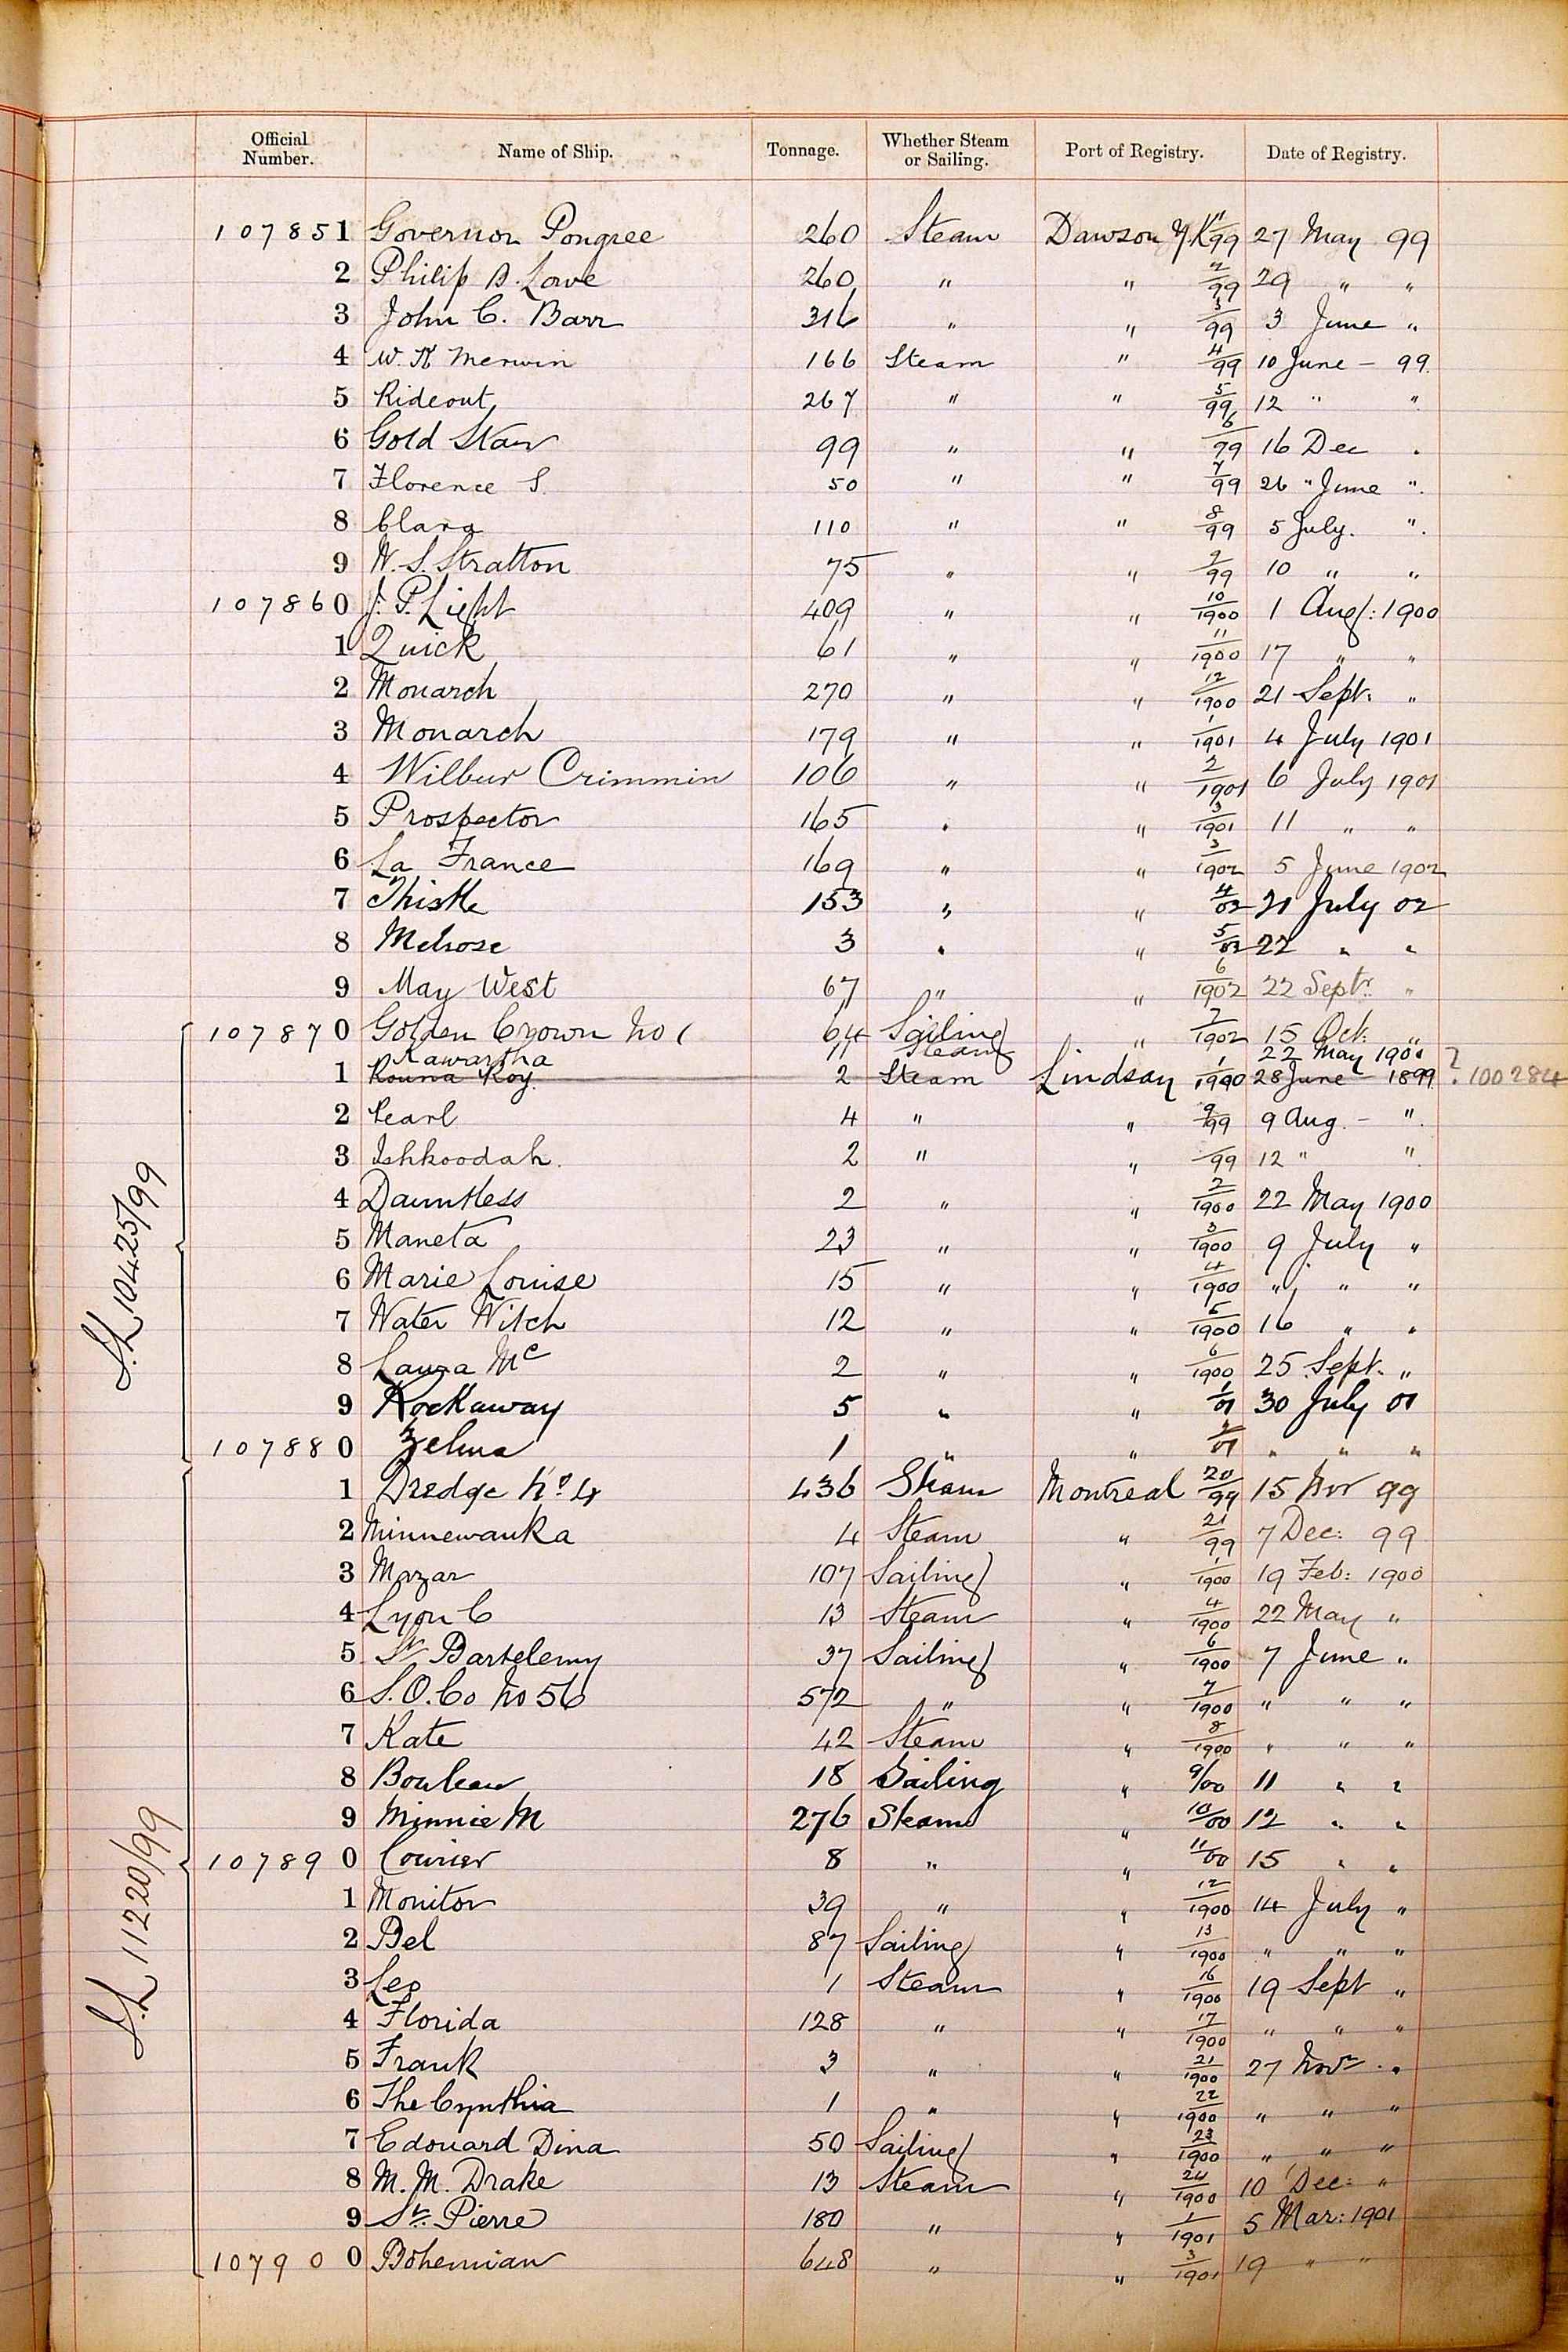 Official Number. Name of Ship. Tonnage. Whether Steam or Sailing. Port of Registry. Date of Registry.
107851 Governor Pongree 260 Steam Dawson Y.K 1/99 27 May 99
2 Philip B. Lowe 260 " " 2/99 29 " "
3 John C. Barr 316 " " 3/99 3 June "
4 W. K Merwin 166 Steam " 4/99 10 June - 99.
5 Rideout 267 " " 5/99 12 " "
6 Gold Star 99 " " 6/99 16 Dec "
7 Florence S. 50 " " 7/99 26 " June "
8 Clara 110 " " 8/99 5 July. "
9 W. S. Stratton 75 " " 9/99 10 " "
107860 J. P. Light 409 " " 10/1900 1 Aug: 1900
1 Quick 61 " " 11/1900 17 " "
2 Monarch 270 " " 12/1900 21 Sept: "
3 Monarch 179 " " 1/1901 4 July 1901
4 Wilbur Crimmin 106 " " 2/1901 6 July 1901
5 Prospector 165 " " 3/1901 11 " "
6 La France 169 " " 3/1902 5 June 1902
7 Thistle 153 " " 4/02 21 July 02
8 Melrose 3 " " 5/02 22 " "
9 May West 67 " " 6/1902 22 Septr. "
107870 Golden Crown No 1 64 Sailing " 7/1902 15 Oct: "
Kawartha 11 Steam 22 May 1900
1 Rouna Roy. 2 Steam Lindsay 1/1900 28 June - 1899 ? 100284
2 Pearl 4 " " 9/99 9 Aug. - "
3 Ishkoodah. 2 " " /99 12 " "
4 Dauntless 2 " " 2/1900 22 May 1900
5 Maneta 23 " " 3/1900 9 July "
6 Marie Louise 15 " " 4/1900 " " "
7 Water Witch 12 " " 5/1900 16 " "
8 Laura Mc 2 " " 6/1900 25 Sept. "
9 Rockaway 5 " " 1/01 30 July 01
107880 Zelma 1 " " 2/01 " " "
S.L 10425/99
1 Dredge No. 4 436 Steam Montreal 20/99 15 Nov 99
2 Minnewanka 4 Steam " 21/99 7 Dec: 99
3 Mazar 107 Sailing " 1/1900 19 Feb: 1900
4 Lyon C 13 Steam " 4/1900 22 May "
5 St Bartelemy 37 Sailing " 6/1900 7 June "
6 S.O.Co No 56 572 " " 7/1900 " " "
7 Kate 42 Steam " 8/1900 " " "
8 Bouleau 18 Sailing " 9/00 11 " "
9 Minnie M 276 Steam " 10/00 12 " "
107890 Courier 8 " " 11/00 15 " "
1 Monitor 39 " " 12/1900 14 July "
2 Bel 87 Sailing " 13/1900 " " "
3 Leo 1 Steam " 16/1900 19 Sept "
4 Florida 128 " " 17/1900 " " "
5 Frank 3 " " 21/1900 27 Novr "
6 The Cynthia 1 " " 22/1900 " " "
7 Edouard Dina 50 Sailing " 23/1900 " " "
8 M. M. Drake 13 Steam " 24/1900 10 Dec: "
9 St. Pierre 180 " " 1/1901 5 Mar: 1901
107900 Bohemian 648 " " 3/1901 19 " "
S.L 11220/99